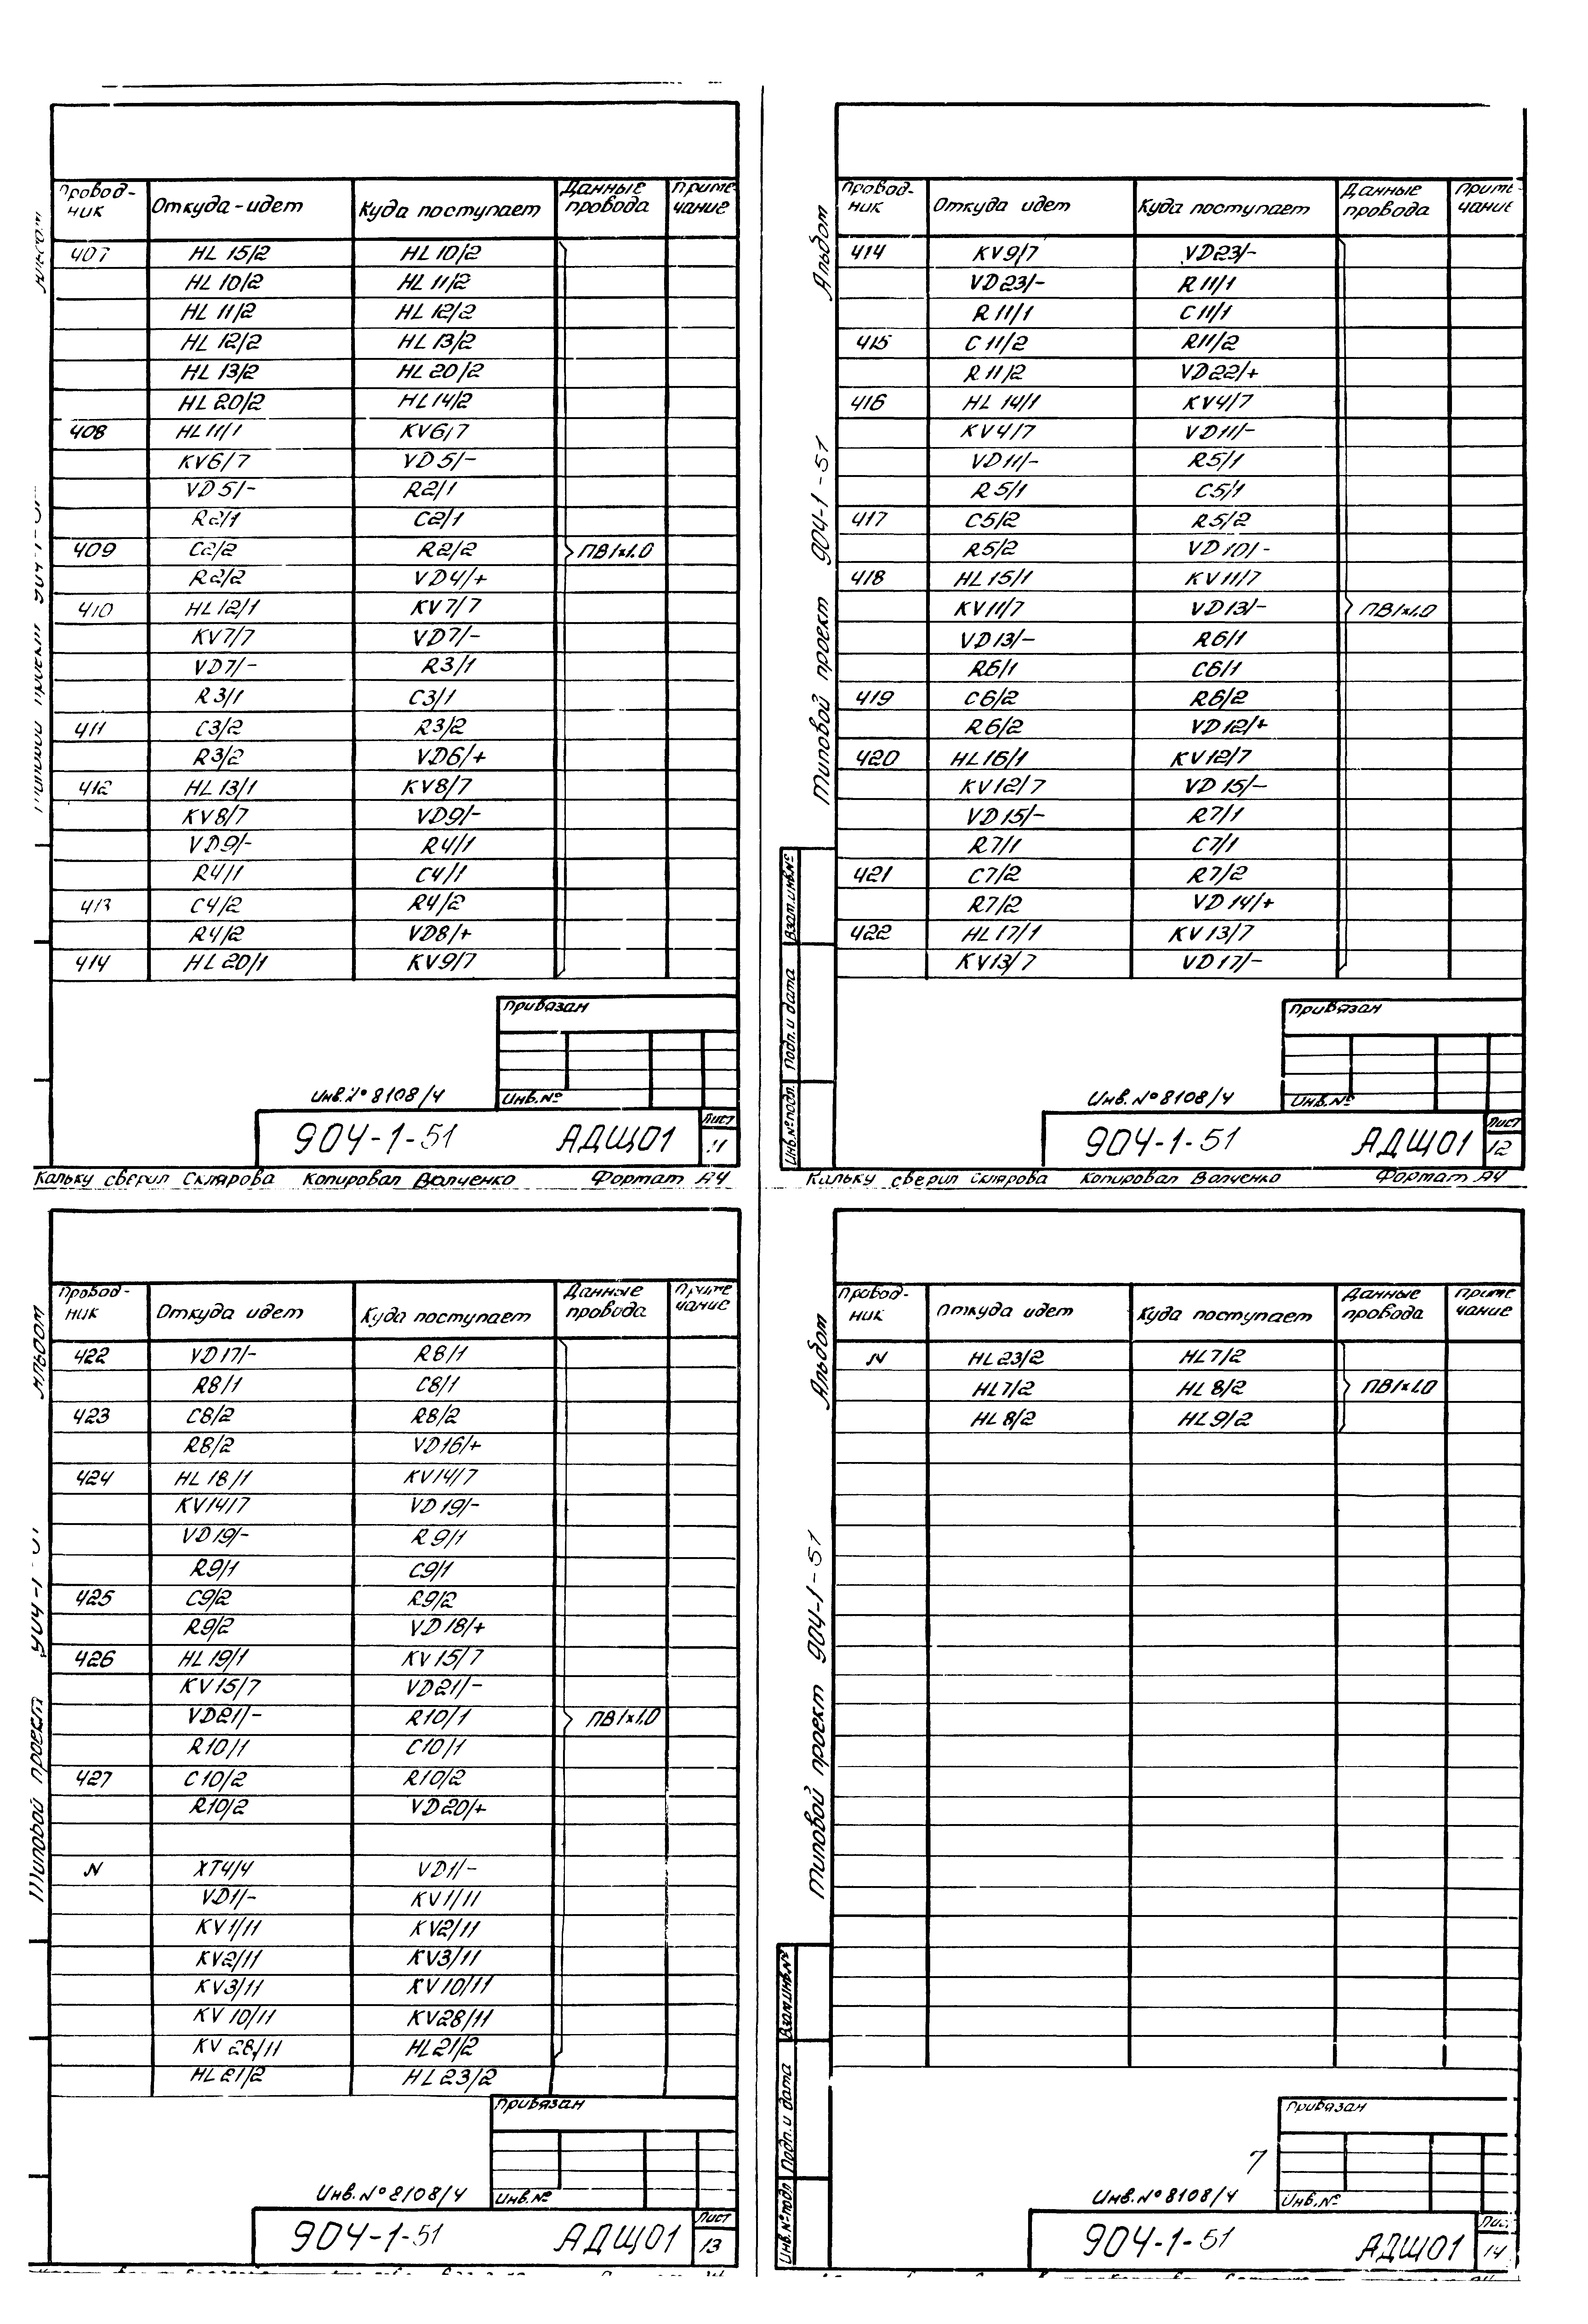 Провод-ник Откуда-идет Куда поступает Данные провода Приме-чание
407 HL 15/2 HL 10/2
HL 10/2 HL 11/2
HL 11/2 HL 12/2
HL 12/2 HL 13/2
HL 13/2 HL 20/2
HL 20/2 HL 14/2
408 HL 11/1 KV6/7
KV6/7 VD5/-
VD5/- R2/1
R2/1 C2/1
409 C2/2 R2/2 ПВ1х1,0
R2/2 VD4/+
410 HL 12/1 KV7/7
KV7/7 VD7/-
VD7/- R3/1
R3/1 C3/1
411 C3/2 R3/2
R3/2 VD6/+
412 HL 13/1 KV8/7
KV8/7 VD9/-
VD9/- R4/1
R4/1 C4/1
413 C4/2 R4/2
R4/2 VD8/+
414 HL 20/1 KV9/7
Привязан
Инв.№ 8108/4 Инв.№
904-1-51 АДЩ01 Лист 11
Кальку сверил Склярова Копировал Волченко Формат А4
Альбом
Типовой проект 904-1-51
Провод-ник Откуда идет Куда поступает Данные провода Приме-чание
414 KV9/7 VD23/-
VD23/- R11/1
R11/1 C11/1
415 C11/2 R11/2
R11/2 VD22/+
416 HL 14/1 KV4/7
KV4/7 VD11/-
VD11/- R5/1
R5/1 C5/1
417 C5/2 R5/2
R5/2 VD10/-
418 HL 15/1 KV11/7
KV11/7 VD13/- ПВ1х1,0
VD13/- R6/1
R6/1 C6/1
419 C6/2 R6/2
R6/2 VD12/+
420 HL16/1 KV12/7
KV12/7 VD15/-
VD15/- R7/1
R7/1 C7/1
421 C7/2 R7/2
R7/2 VD14/+
422 HL 17/1 KV13/7
KV13/7 VD17/-
Взам.инв.№
Подп. и дата
Инв.№подл.
Привязан
Инв.№ 8108/4 Инв.№
904-1-51 АДЩ01 Лист 12
Кальку сверил Склярова Копировал Волченко Формат А4
Альбом
Типовой проект 904-1-51
Провод-ник Откуда идет Куда поступает Данные провода Приме чание
422 VD17/- R8/1
R8/1 C8/1
423 C8/2 R8/2
R8/2 VD16/+
424 HL 18/1 KV14/7
KV14/7 VD19/-
VD19/- R9/1
R9/1 C9/1
425 C9/2 R9/2
R9/2 VD18/+
426 HL 19/1 KV15/7
KV15/7 VD21/-
VD21/- R10/1 ПВ1х1,0
R10/1 C10/1
427 C10/2 R10/2
R10/2 VD20/+
N XT4/4 VD1/-
VD1/- KV1/11
KV1/11 KV2/11
KV2/11 KV3/11
KV3/11 KV10/11
KV10/11 KV28/11
KV28/11 HL21/2
HL21/2 HL23/2
Привязан
Инв.№ 8108/4 Инв.№
904-1-51 АДЩ01 Лист 13
Альбом
Типовой проект 904-1-51
Провод-ник Откуда идет Куда поступает Данные провода Приме чание
N HL23/2 HL7/2
HL7/2 HL8/2 ПВ1х1,0
HL8/2 HL9/2
Взам.инв.№
Подп. и дата
Инв.№подл
Привязан
7
Инв.№ 8108/4 Инв.№
904-1-51 АДЩ01 Лист 14